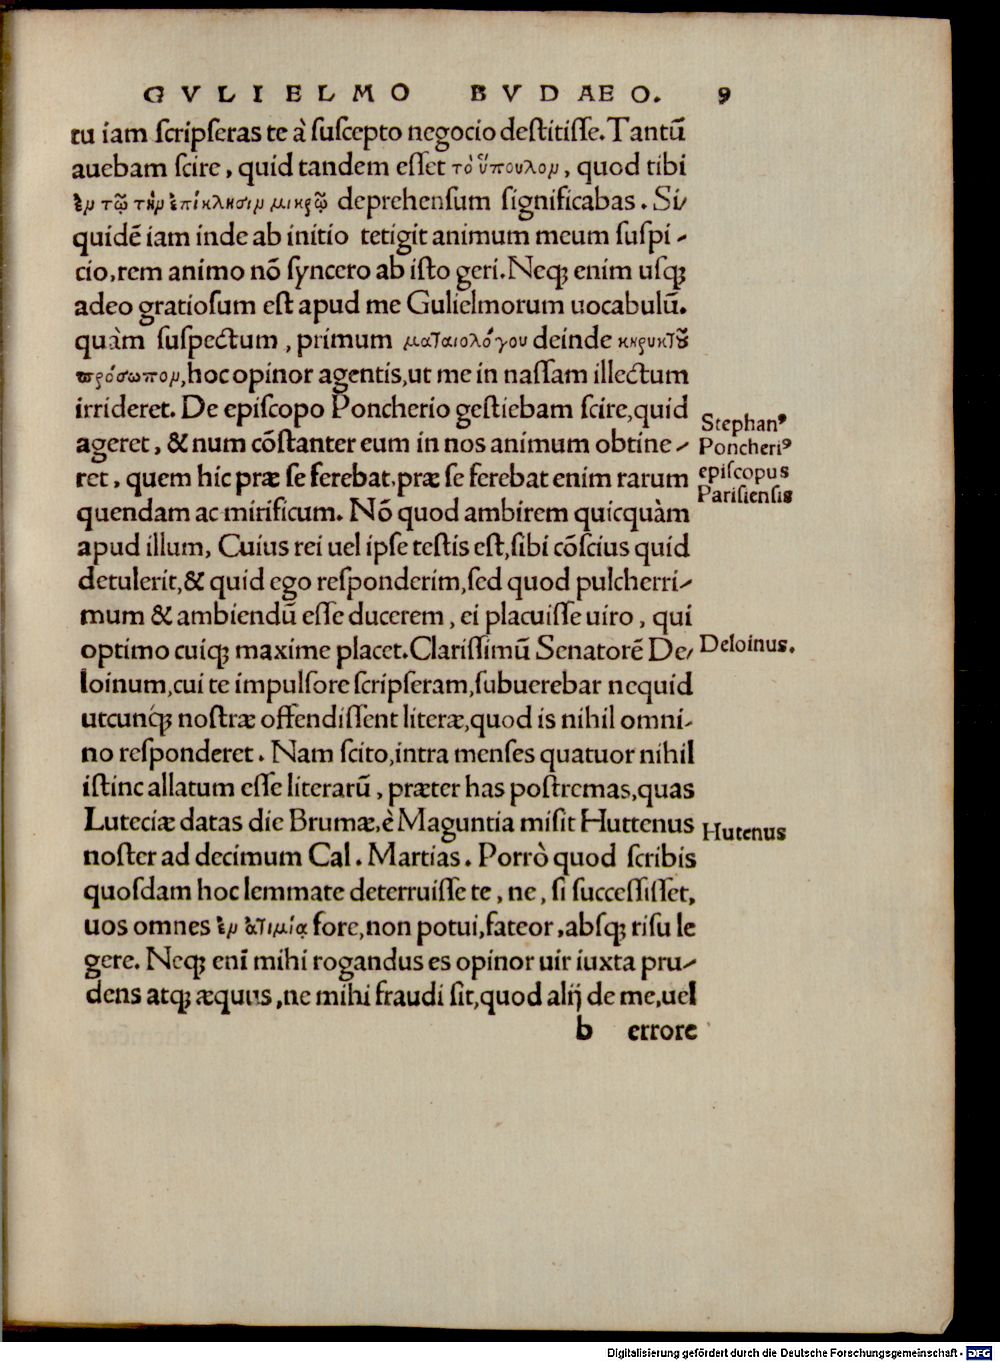 GVLIELMO BVDAEO. 9
tu iam scripseras te à suscepto negocio destitisse. Tantũ
auebam scire, quid tandem esset τὸ ὕπουλον, quod tibi
ἐν τῷ τὴν ἐπίκλησιν μικρῷ deprehensum significabas. Si/
quidẽ iam inde ab initio tetigit animum meum suspi-
cio, rem animo nõ syncero ab isto geri. Neq; enim usq;
adeo gratiosum est apud me Gulielmorum uocabulũ.
quàm suspectum, primum ματαιολόγου deinde κηρυκτοῦ
πρόσωπον, hoc opinor agentis, ut me in nassam illectum
irrideret. De episcopo Poncherio gestiebam scire, quid
ageret, & num cõstanter eum in nos animum obtine-
ret, quem hic præ se ferebat. præ se ferebat enim rarum
quendam ac mirificum. Nõ quod ambirem quicquàm
apud illum, Cuius rei uel ipse testis est, sibi cõscius quid
detulerit, & quid ego responderim, sed quod pulcherri-
mum & ambiendũ esse ducerem, ei placuisse uiro, qui
optimo cuiq; maxime placet. Clarissimũ Senatorẽ De/
loinum, cui te impulsore scripseram, subuerebar nequid
utcunq́; nostræ offendissent literæ, quod is nihil omni-
no responderet. Nam scito, intra menses quatuor nihil
istinc allatum esse literarũ, præter has postremas, quas
Luteciæ datas die Brumæ, è Maguntia misit Huttenus
noster ad decimum Cal. Martias. Porrò quod scribis
quosdam hoc lemmate deterruisse te, ne, si successisset,
uos omnes ἐν ἀτιμίᾳ fore, non potui, fateor, absq; risu le
gere. Neq; enĩ mihi rogandus es opinor uir iuxta pru-
dens atq; æquus, ne mihi fraudi sit, quod alij de me, uel
b errore
Stephanꝰ
Poncheriꝰ
episcopus
Parisiensis
Deloinus.
Hutenus
Digitalisierung gefördert durch die Deutsche Forschungsgemeinschaft - DFG